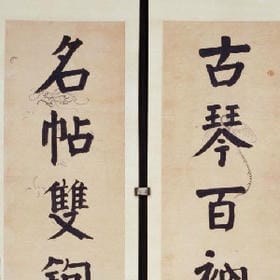 古琴百衲
名帖雙鉤